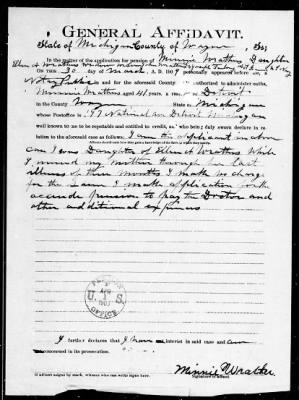 GENERAL AFFIDAVIT.
State of Michigan County of Wayne, SS:
In the matter of the application for pension of Minnie Wrathers Daughter
ON THIS 30 day of March A. D. 1907 personally appeared before me, a
Notary Public in and for the aforesaid County authorized to administer oaths,
Minnie Wrathers aged 41 years, a resident of Detroit
in the County Wayne State of Michigan
whose Postoffice is 97 National Ave Detroit Michigan
well known to me to be reputable and entitled to credit, and who, being duly sworn, declares in re-
lation to the aforesaid case as follows: I am the applicant in above
case I am Daughter of Wrathers While
I nursed my mother through her last
illness of three months I make no charge
for the same I make application for the
accrued pension to pay the Doctor and
other additional expenses
PENSION
U. S.
APR 1 1907
OFFICE
I further declares that I have no interest in said case and am
not concerned in its prosecution.
Minnie Wrather
If affiant signs by mark, witness who can write signs here.
Signature of Affiant